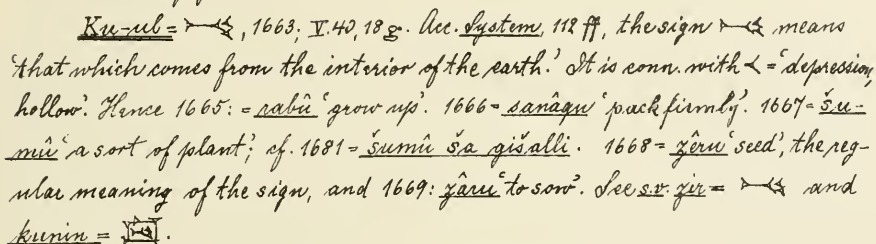 Ku-ul = 𒆰, 1663; V. 40, 18 g. Acc. System, 112 ff, the sign 𒆰 means
'that which comes from the interior of the earth.' It is conn. with 𒌋 = 'depression,
hollow'. Hence 1665: = rabû 'grow up'. 1666 = sanâqu 'pack firmly'. 1667 = šu-
mû 'a sort of plant'; cf. 1681 = šumû ša gišalli. 1668 = zêru 'seed', the reg-
ular meaning of the sign, and 1669: zâru 'to sow'. See s.v. zir = 𒆰 and
kunin =